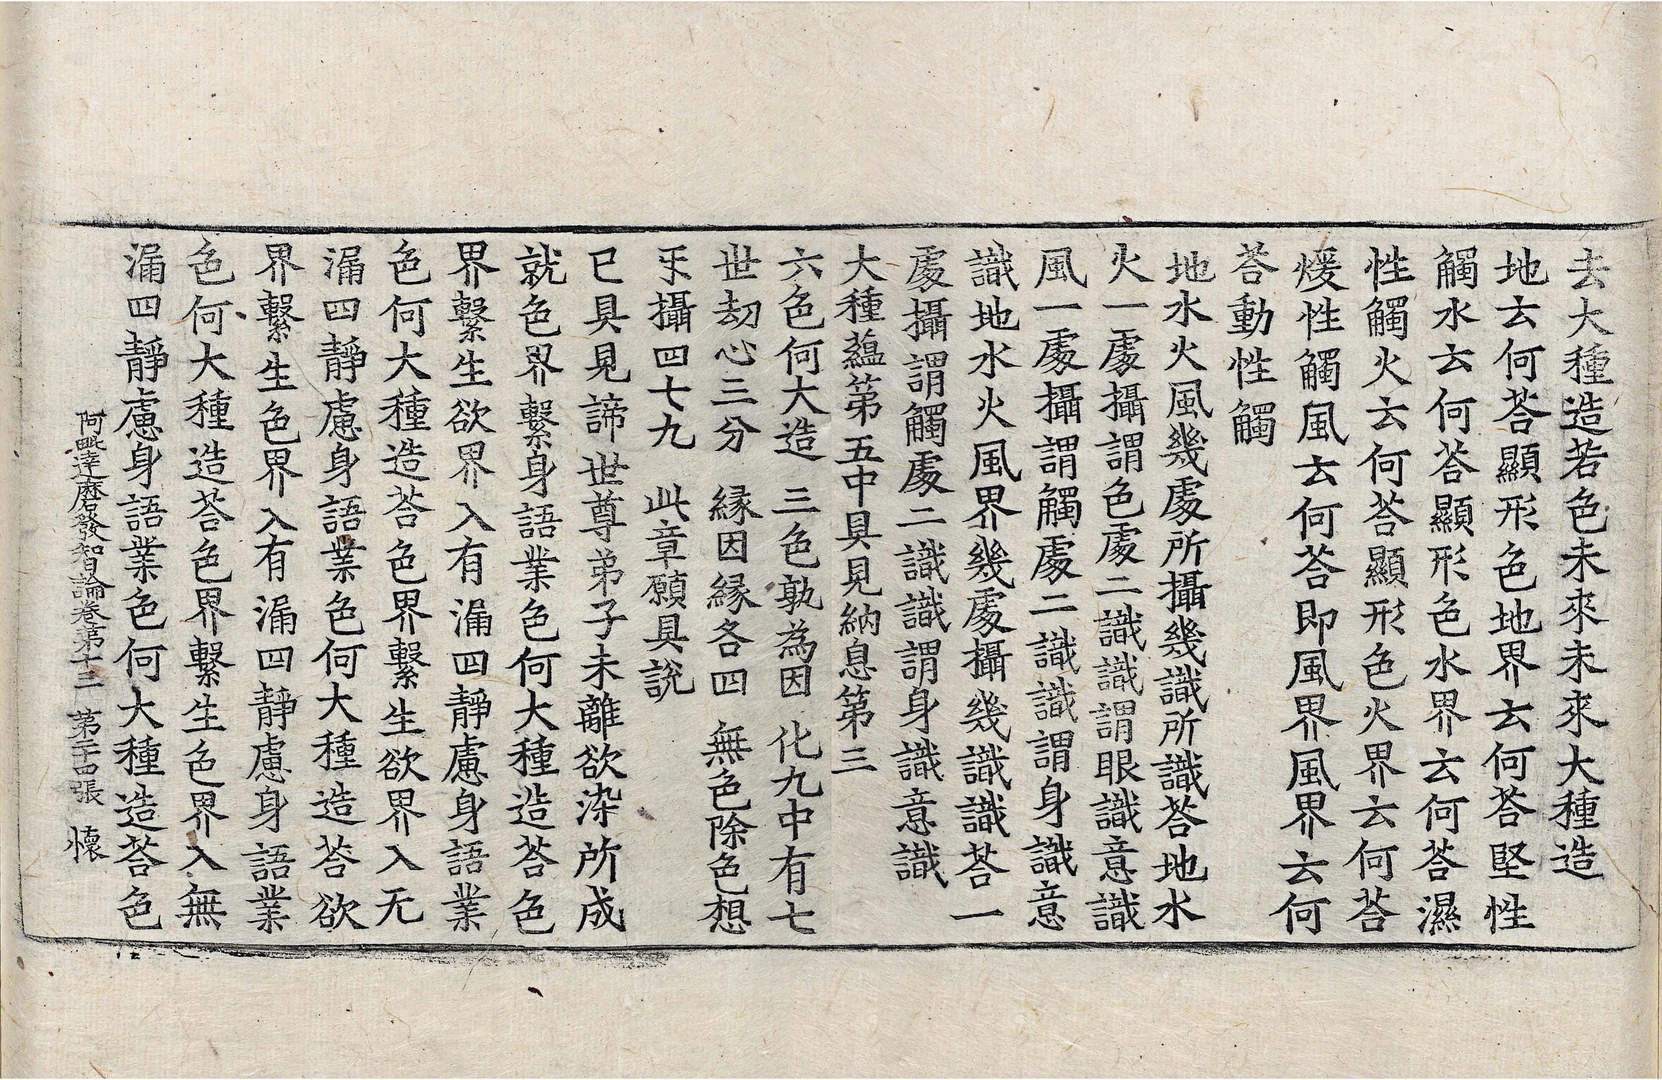 去大種造若色未來未來大種造
地云何荅顯形色地界云何荅堅性
觸水云何荅顯形色水界云何荅濕
性觸火云何荅顯形色火界云何荅
煖性觸風云何荅即風界風界云何
荅動性觸
地水火風幾處所攝幾識所識荅地水
火一處攝謂色處二識識謂眼識意識
風一處攝謂觸處二識識謂身識意
識地水火風界幾處攝幾識識荅一
處攝謂觸處二識識謂身識意識
大種蘊第五中具見納息第三
六色何大造 三色孰為因 化九中有七
世劫心三分 縁因縁各四 無色除色想
㸦攝四七九 此章願具說
已具見諦世尊弟子未離欲染所成
就色界繫身語業色何大種造荅色
界繫生欲界入有漏四靜慮身語業
色何大種造荅色界繫生欲界入无
漏四靜慮身語業色何大種造荅欲
界繫生色界入有漏四靜慮身語業
色何大種造荅色界繫生色界入無
漏四靜慮身語業色何大種造荅色
阿毗達磨發智論卷第十三 第二十四張 懷